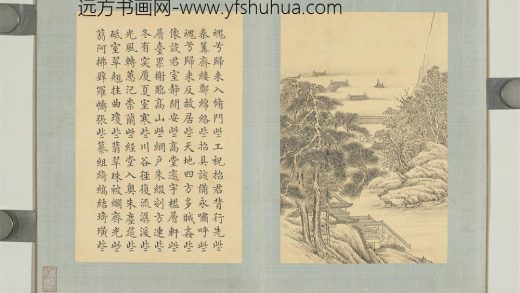 远方书画网-www.yfshuhua.com
魂兮歸來入脩門些工祝招君背行先些
秦篝齊縷鄭綿絡些招具該備永嘯呼些
魂兮歸來反故居些天地四方多賊姦些
像設君室靜閒安些高堂邃宇檻層軒些
層臺累榭臨高山些網戶朱綴刻方連些
冬有突廈夏室寒些川谷徑復流潺湲些
光風轉蕙氾崇蘭些經堂入奧朱塵筵些
砥室翠翹挂曲瓊些翡翠珠被爛齊光些
阿拂壁羅幬張些纂組綺縞結琦璜些